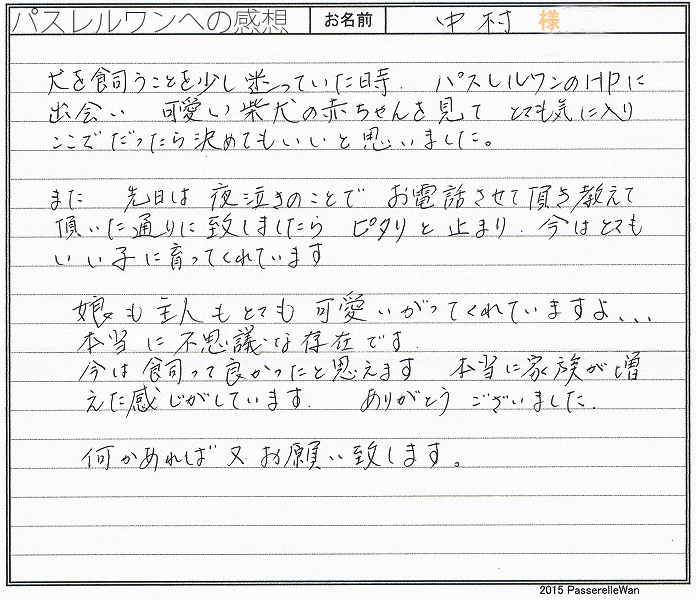 パスレルワンへの感想 お名前 中村 様
犬を飼うことを少し迷っていた時. パスレルワンのHPに
出会い 可愛い柴犬の赤ちゃんを見て とても気に入り
ここでだったら決めてもいいと思いました。
また 先日は夜泣きのことで お電話させて頂き教えて
頂いた通りに致しましたら ピタリと止まり. 今はとても
いい子に育ってくれています
娘も主人もとても可愛いがってくれていますよ...
本当に不思議な存在です.
今は飼って良かったと思えます 本当に家族が増
えた感じがしています. ありがとう ございました.
何かあれば又お願い致します。
2015 PasserelleWan